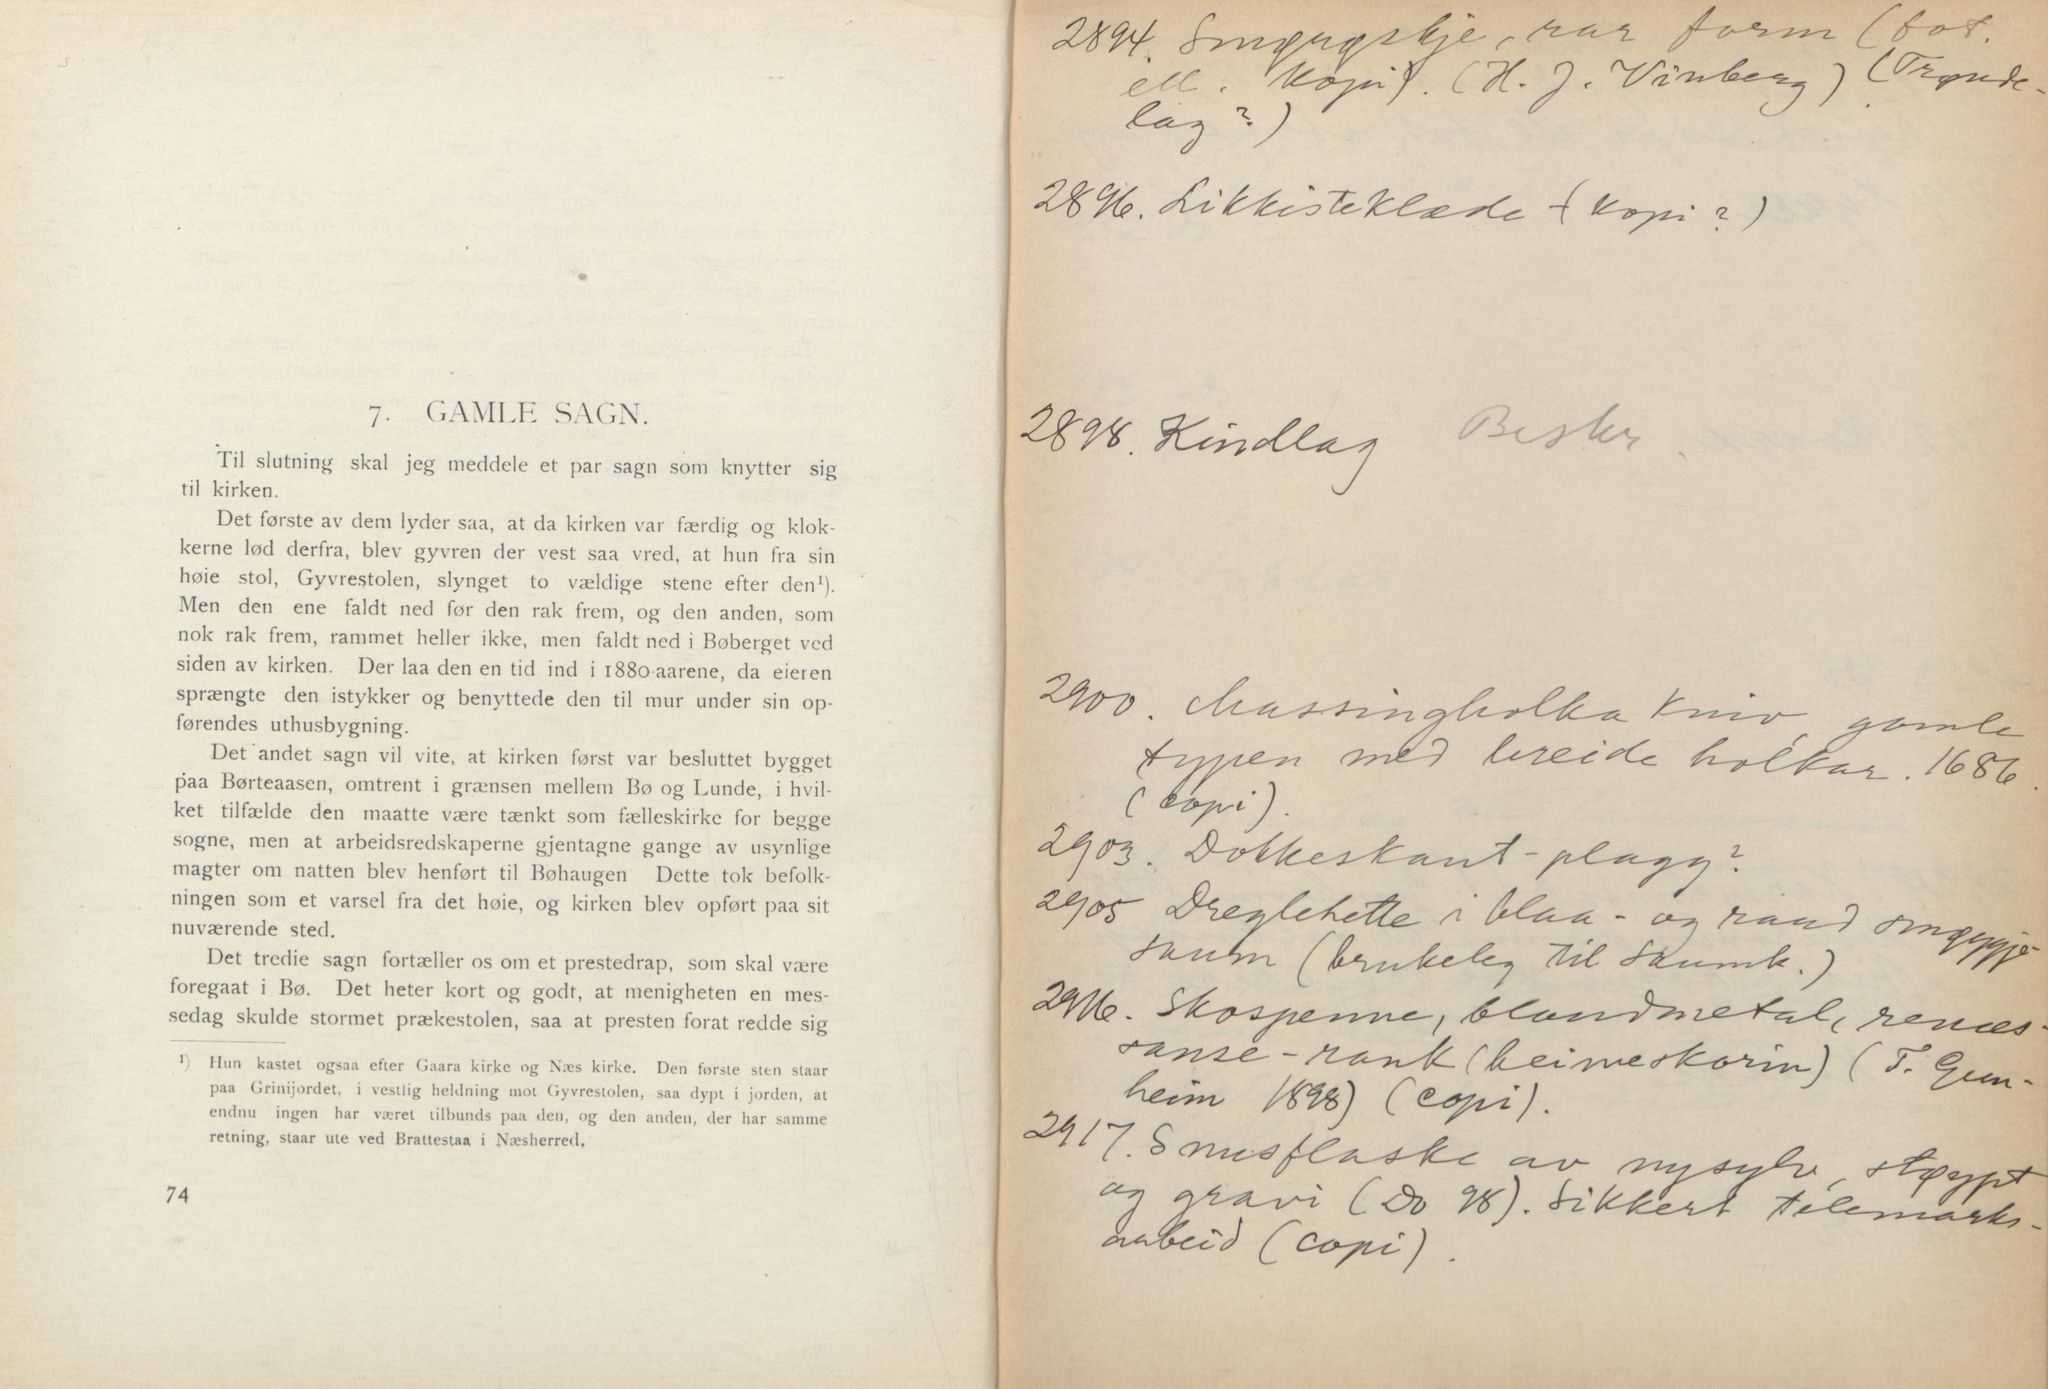 7. GAMLE SAGN.
Til slutning skal jeg meddele et par sagn som knytter sig
til kirken.
Det første av dem lyder saa, at da kirken var færdig og klok-
kerne lød derfra, blev gyvren der vest saa vred, at hun fra sin
høie stol, Gyvrestolen, slynget to vældige stene efter den¹).
Men den ene faldt ned før den rak frem, og den anden, som
nok rak frem, rammet heller ikke, men faldt ned i Bøberget ved
siden av kirken. Der laa den en tid ind i 1880-aarene, da eieren
sprængte den istykker og benyttede den til mur under sin op-
førendes uthusbygning.
Det andet sagn vil vite, at kirken først var besluttet bygget
paa Børteaasen, omtrent i grænsen mellem Bø og Lunde, i hvil-
ket tilfælde den maatte være tænkt som fælleskirke for begge
sogne, men at arbeidsredskaperne gjentagne gange av usynlige
magter om natten blev henført til Bøhaugen Dette tok befolk-
ningen som et varsel fra det høie, og kirken blev opført paa sit
nuværende sted.
Det tredie sagn fortæller os om et prestedrap, som skal være
foregaat i Bø. Det heter kort og godt, at menigheten en mes-
sedag skulde stormet prækestolen, saa at presten forat redde sig
¹) Hun kastet ogsaa efter Gaara kirke og Næs kirke. Den første sten staar
paa Grinijordet, i vestlig heldning mot Gyvrestolen, saa dypt i jorden, at
endnu ingen har været tilbunds paa den, og den anden, der har samme
retning, staar ute ved Brattestaa i Næsherred.
74
2894. Smørøskje, rar form (fot.
ell. kopi). (H. J. Vinberg) (Trønde-
lag?)
2896. Likkisteklæde (kopi?)
2898. Kindlag Beskr.
2900. Massingholka kniv, gamle
typen med breide holkar. 1686.
(copi).
2903. Dokkeskaut-plagg?
2905 Dreglehette i blaa- og raud smøygje-
saum (brukeleg til saumk.)
2916. Skospenne, blandmetal, renæs-
sanse-rank (heimeskorin) (T. Grun-
heim 1898) (copi).
2917. Snusflaske av nysylv, støypt
og gravi (Do 98). Sikkert telemarks-
arbeid (copi).